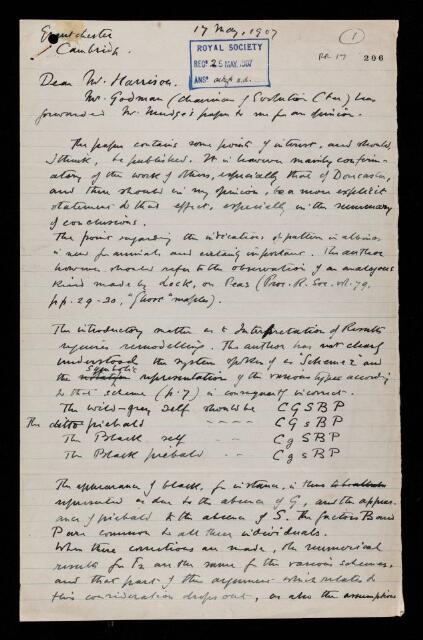 Grantchester
Cambridge.
17 May, 1907
(1)
ROYAL SOCIETY
REC? 25 MAY. 1907
ANS?
RR 17 206
Dear Mr. Harrison.
Mr. Godman (chairman of Evolution Ctee) has
forwarded Mr. Mudge's paper to me for an opinion.
The paper contains some points of interest, and should
I think, be published. It is however mainly confirm-
atory of the work of others, especially that of Doncaster,
and there should in my opinion, be a more explicit
statement to that effect, especially in the summary
of conclusions.
The point regarding the indications of pattern in albinos
is new for animals and certainly important. The author
however should refer to the observation of an analogous
kind made by Lock, on Peas (Proc. R. Soc. vol. 79,
pp. 29-30, "Ghost" maples).
The introductory matter as to Interpretation of Results
requires remodelling. The author has not clearly
understood the system spoken of as "Scheme 2" and
the symbolic representation of the various types according
to that scheme (p. 7) is consequently incorrect.
The wild-grey self should be C G S B P
The ditto piebald - - - - C G s B P
The Black self - - C g S B P
The Black piebald - - C g s B P
The appearance of black, for instance, is thus to
represented as due to the absence of G, and the appear-
ance of piebald to the absence of S. The factors B and
P are common to all these individuals.
When these corrections are made, the numerical
results for F2 are the same for the various schemes,
and that part of the argument which relates to
this consideration drops out, as also the assumptions